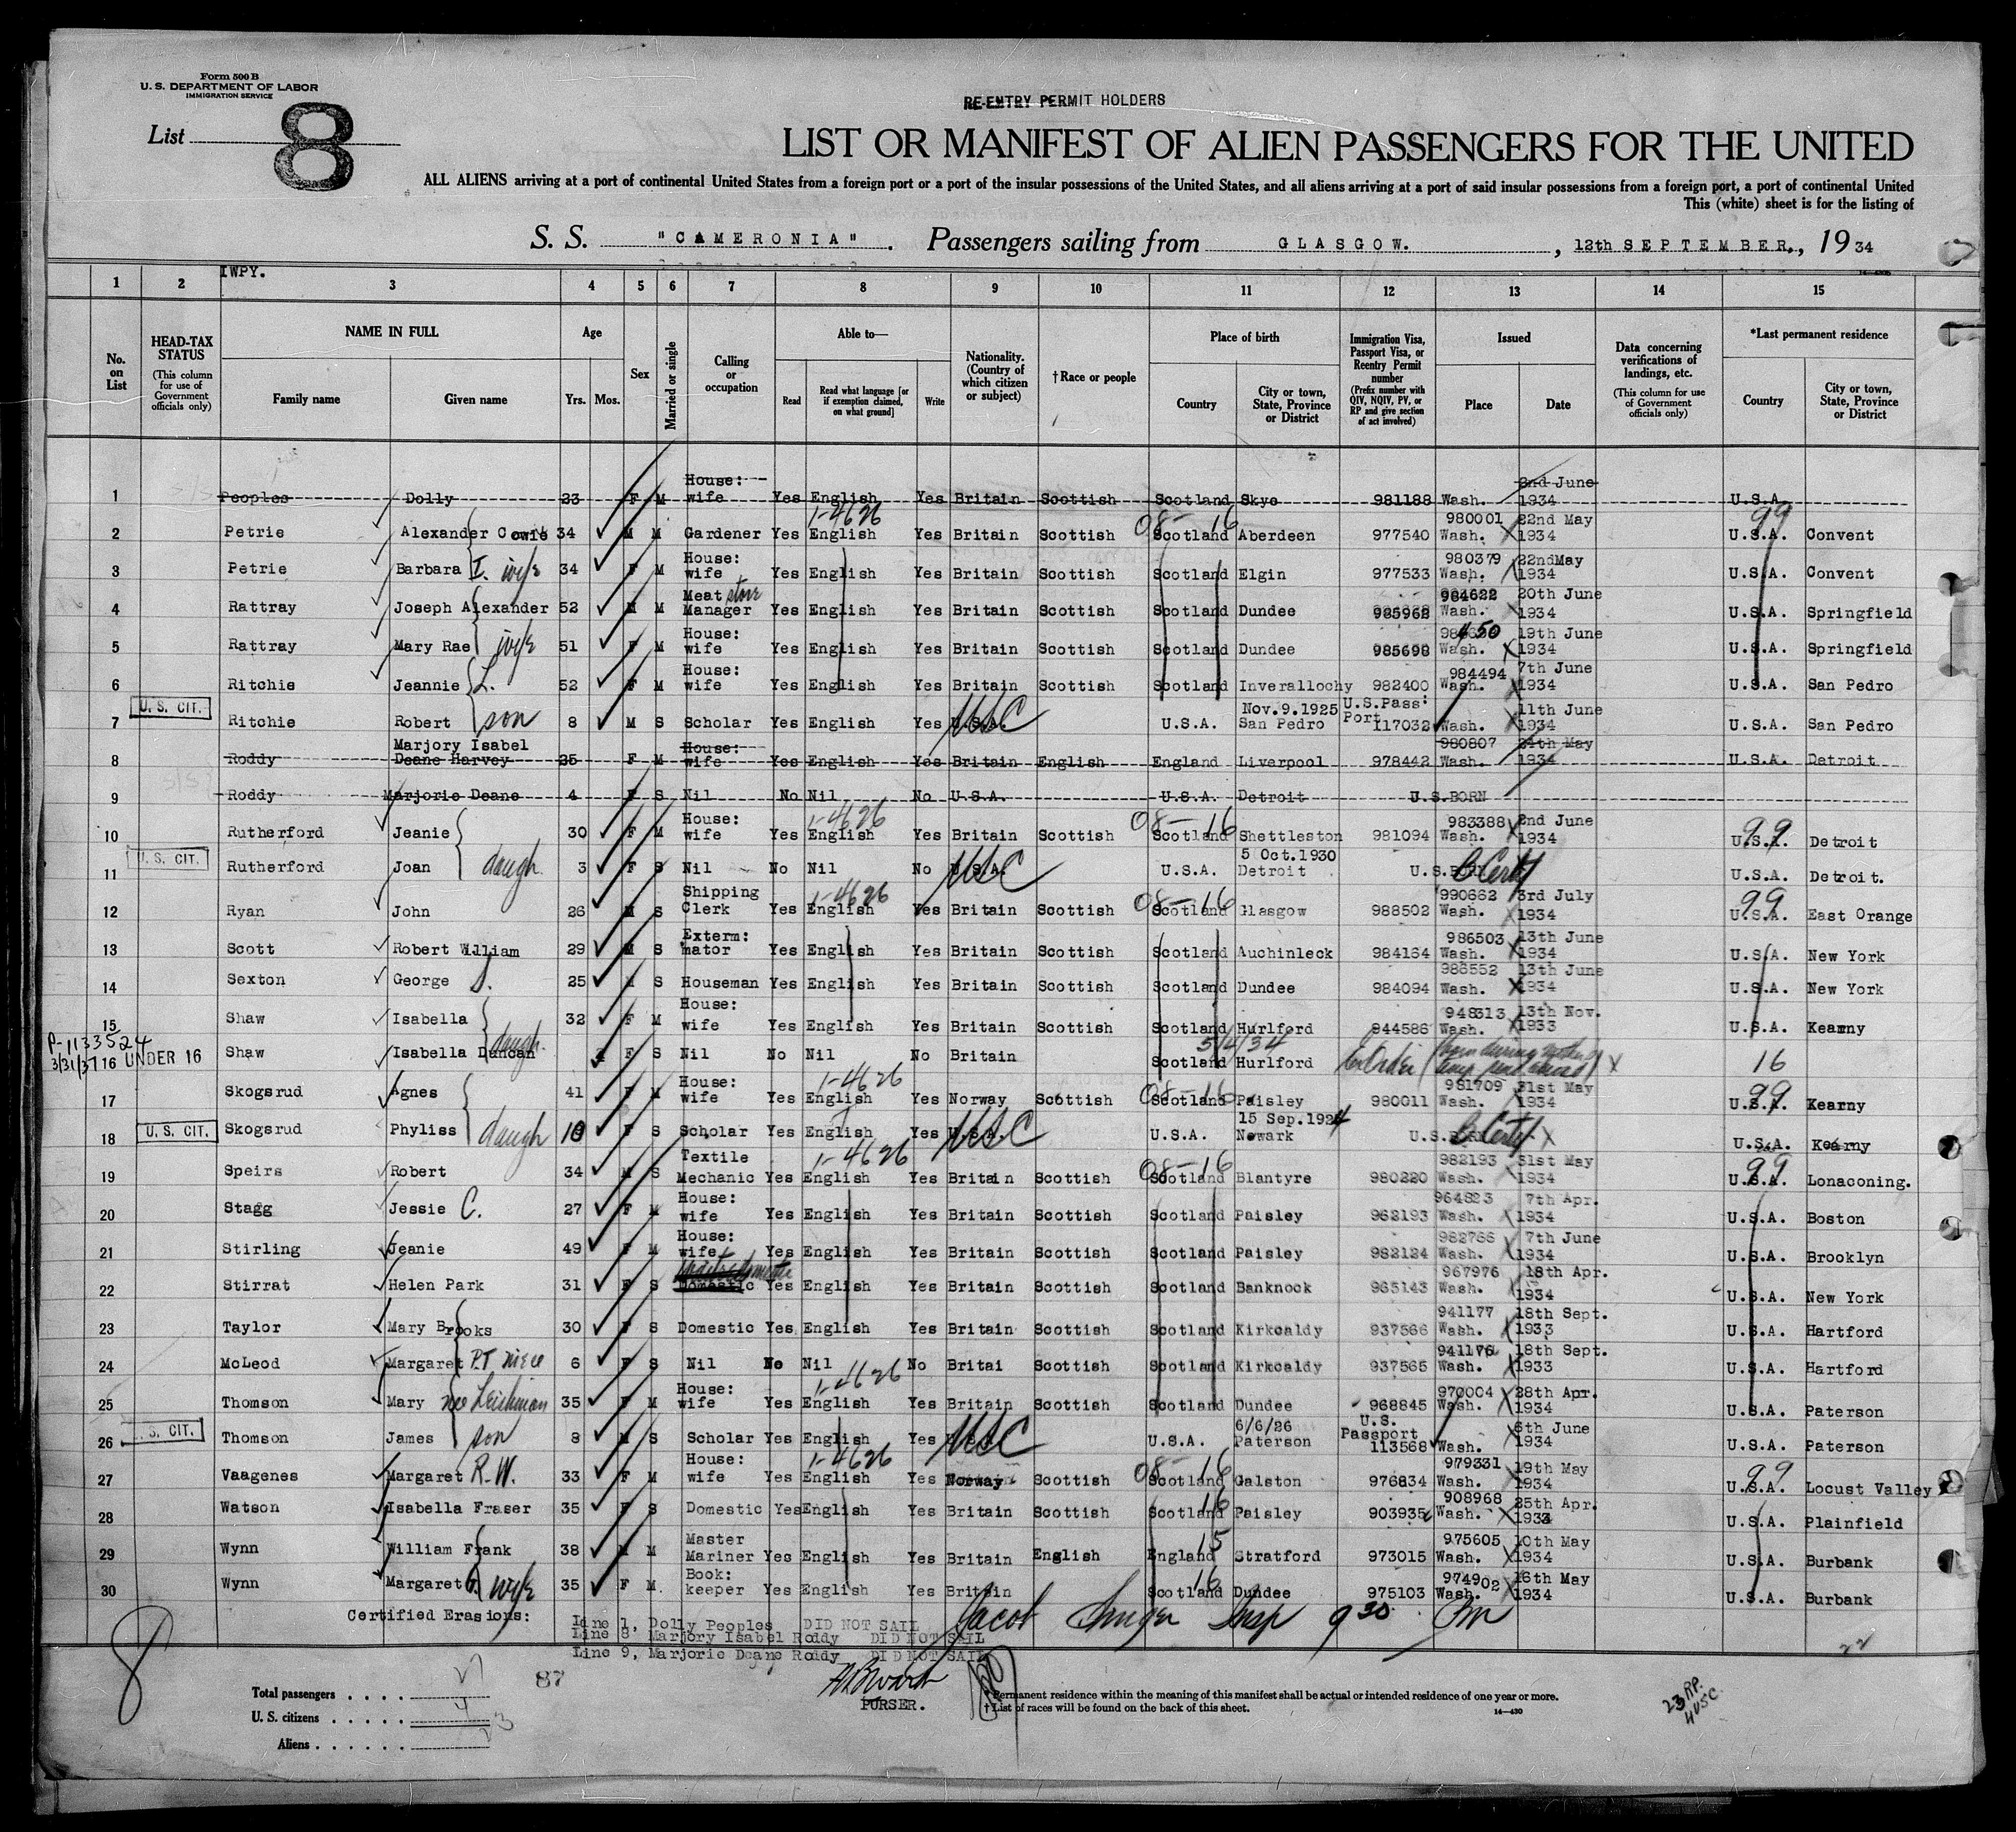 Form 500 B
U. S. DEPARTMENT OF LABOR
IMMIGRATION SERVICE
List 8
RE-ENTRY PERMIT HOLDERS
LIST OR MANIFEST OF ALIEN PASSENGERS FOR THE UNITED
ALL ALIENS arriving at a port of continental United States from a foreign port or a port of the insular possessions of the United States, and all aliens arriving at a port of said insular possessions from a foreign port, a port of continental United
This (white) sheet is for the listing of
S. S. "CAMERONIA". Passengers sailing from GLASGOW., 12th SEPTEMBER., 1934
IWPY.
1 2 3 4 5 6 7 8 9 10 11 12 13 14 15
No. on List
HEAD-TAX STATUS (This column for use of Government officials only)
NAME IN FULL Family name Given name
Age Yrs. Mos.
Sex
Married or single
Calling or occupation
Able to— Read Read what language [or if exemption claimed, on what ground] Write
Nationality. (Country of which citizen or subject)
†Race or people
Place of birth Country City or town, State, Province or District
Immigration Visa, Passport Visa, or Reentry Permit number (Prefix number with QIV, NQIV, PV, or RP and give section of act involved)
Issued Place Date
Data concerning verifications of landings, etc. (This column for use of Government officials only)
*Last permanent residence Country City or town, State, Province or District
1 Peoples Dolly 23 F M House: wife Yes English Yes Britain Scottish Scotland Skye 981188 Wash. 2nd June 1934 U.S.A.
1-4626 08-16 99
2 Petrie Alexander Cowie 34 M M Gardener Yes English Yes Britain Scottish Scotland Aberdeen 977540 980001 Wash. 22nd May 1934 U.S.A. Convent
3 Petrie Barbara I. wife 34 F M House: wife Yes English Yes Britain Scottish Scotland Elgin 977533 980379 Wash. 22nd May 1934 U.S.A. Convent
4 Rattray Joseph Alexander 52 M M Meat store Manager Yes English Yes Britain Scottish Scotland Dundee 985968 984622 Wash. 20th June 1934 U.S.A. Springfield
5 Rattray Mary Rae wife 51 F M House: wife Yes English Yes Britain Scottish Scotland Dundee 985698 Wash. 19th June 1934 U.S.A. Springfield
6 Ritchie Jeannie L. 52 F M House: wife Yes English Yes Britain Scottish Scotland Inverallochy 982400 984494 Wash. 7th June 1934 U.S.A. San Pedro
U. S. CIT.
7 Ritchie Robert son 8 M S Scholar Yes English Yes U.S.A. USC U.S.A. Nov.9.1925 San Pedro U.S.Pass: Port 117032 Wash. 11th June 1934 U.S.A. San Pedro
8 Roddy Marjory Isabel Deane Harvey 25 F M House: wife Yes English Yes Britain English England Liverpool 978442 980807 Wash. 24th May 1934 U.S.A. Detroit
9 Roddy Marjorie Deane 4 F S Nil No Nil No U.S.A. U.S.A. Detroit U.S.BORN
1-4626 08-16 99
10 Rutherford Jeanie 30 F M House: wife Yes English Yes Britain Scottish Scotland Shettleston 981094 983388 Wash. 2nd June 1934 U.S.A. Detroit
U. S. CIT.
11 Rutherford Joan daugh 3 F S Nil No Nil No U.S.A. USC U.S.A. 5 Oct.1930 Detroit U.S.BORN B Certf U.S.A. Detroit.
1-4626 08-16 99
12 Ryan John 26 M S Shipping Clerk Yes English Yes Britain Scottish Scotland Glasgow 988502 990662 Wash. 3rd July 1934 U.S.A. East Orange
13 Scott Robert William 29 M S Exterm: mator Yes English Yes Britain Scottish Scotland Auchinleck 984164 986503 Wash. 13th June 1934 U.S.A. New York
14 Sexton George S. 25 M S Houseman Yes English Yes Britain Scottish Scotland Dundee 984094 986552 Wash. 13th June 1934 U.S.A. New York
15 Shaw Isabella 32 F M House: wife Yes English Yes Britain Scottish Scotland Hurlford 944586 948313 Wash. 13th Nov. 1933 U.S.A. Kearny
P-1133524
3/31/37 16 UNDER 16 Shaw Isabella Duncan daugh. F S Nil No Nil No Britain Scotland 5/4/34 Hurlford born during mother's temp. 16
1-4626 08-16 99
17 Skogsrud Agnes 41 F M House: wife Yes English Yes Norway Scottish Scotland Paisley 980011 981709 Wash. 31st May 1934 U.S.A. Kearny
18 U. S. CIT. Skogsrud Phyliss daugh 10 F S Scholar Yes English Yes U.S.A. USC U.S.A. 15 Sep.1924 Newark U.S.BORN B Certf. U.S.A. Kearny
1-4626 08-16 99
19 Speirs Robert 34 M S Textile Mechanic Yes English Yes Britain Scottish Scotland Blantyre 980220 982193 Wash. 31st May 1934 U.S.A. Lonaconing.
20 Stagg Jessie C. 27 F M House: wife Yes English Yes Britain Scottish Scotland Paisley 962193 964823 Wash. 7th Apr. 1934 U.S.A. Boston
21 Stirling Jeanie 49 F M House: wife Yes English Yes Britain Scottish Scotland Paisley 982124 982766 Wash. 7th June 1934 U.S.A. Brooklyn
22 Stirrat Helen Park 31 F S Domestic Yes English Yes Britain Scottish Scotland Banknock 965143 967976 Wash. 18th Apr. 1934 U.S.A. New York
23 Taylor Mary Brooks 30 F S Domestic Yes English Yes Britain Scottish Scotland Kirkcaldy 937566 941177 Wash. 18th Sept. 1933 U.S.A. Hartford
24 McLeod Margaret P.T niece 6 F S Nil No Nil No Britai Scottish Scotland Kirkcaldy 937565 941176 Wash. 18th Sept. 1933 U.S.A. Hartford
1-4626
25 Thomson Mary nee Leishman 35 F M House: wife Yes English Yes Britain Scottish Scotland Dundee 968845 970004 Wash. 28th Apr. 1934 U.S.A. Paterson
U. S. CIT.
26 Thomson James son 8 M S Scholar Yes English Yes USC U.S.A. 6/6/26 Paterson U.S. Passport 113568 Wash. 6th June 1934 U.S.A. Paterson
1-4626 08-16 99
27 Vaagenes Margaret R.W. 33 F M House: wife Yes English Yes Norway Scottish Scotland Galston 976834 979331 Wash. 19th May 1934 U.S.A. Locust Valley
28 Watson Isabella Fraser 35 F S Domestic Yes English Yes Britain Scottish Scotland 16 Paisley 903935 908968 Wash. 25th Apr. 1933 U.S.A. Plainfield
29 Wynn William Frank 38 M M Master Mariner Yes English Yes Britain English England 15 Stratford 973015 975605 Wash. 10th May 1934 U.S.A. Burbank
30 Wynn Margaret wife 35 F M. Book: keeper Yes English Yes Britain Scotland 16 Dundee 975103 974902 Wash. 16th May 1934 U.S.A. Burbank
Certified Erasions: Line 1, Dolly Peoples DID NOT SAIL
Line 8, Marjory Isabel Roddy DID NOT SAIL
Line 9, Marjorie Deane Roddy DID NOT SAIL
Jacob Insp 9 30 Pm
8
22
87
Total passengers 27
U. S. citizens 4
Aliens 23
PURSER.
* Permanent residence within the meaning of this manifest shall be actual or intended residence of one year or more.
† List of races will be found on the back of this sheet.
14—430
23 RP.
4 USC.